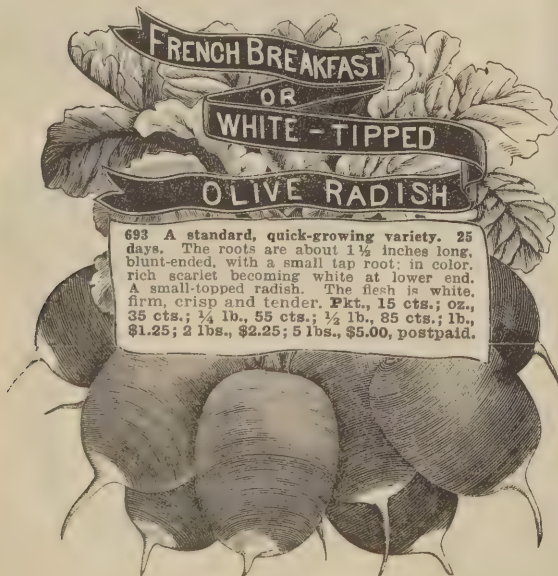 FRENCH BREAKFAST
OR
WHITE - TIPPED
OLIVE RADISH
693 A standard, quick-growing variety. 25
days. The roots are about 1½ inches long,
blunt-ended, with a small tap root; in color,
rich scarlet becoming white at lower end.
A small-topped radish. The flesh is white,
firm, crisp and tender. Pkt., 15 cts.; oz.,
35 cts.; ¼ lb., 55 cts.; ½ lb., 85 cts.; lb.,
$1.25; 2 lbs., $2.25; 5 lbs., $5.00, postpaid.